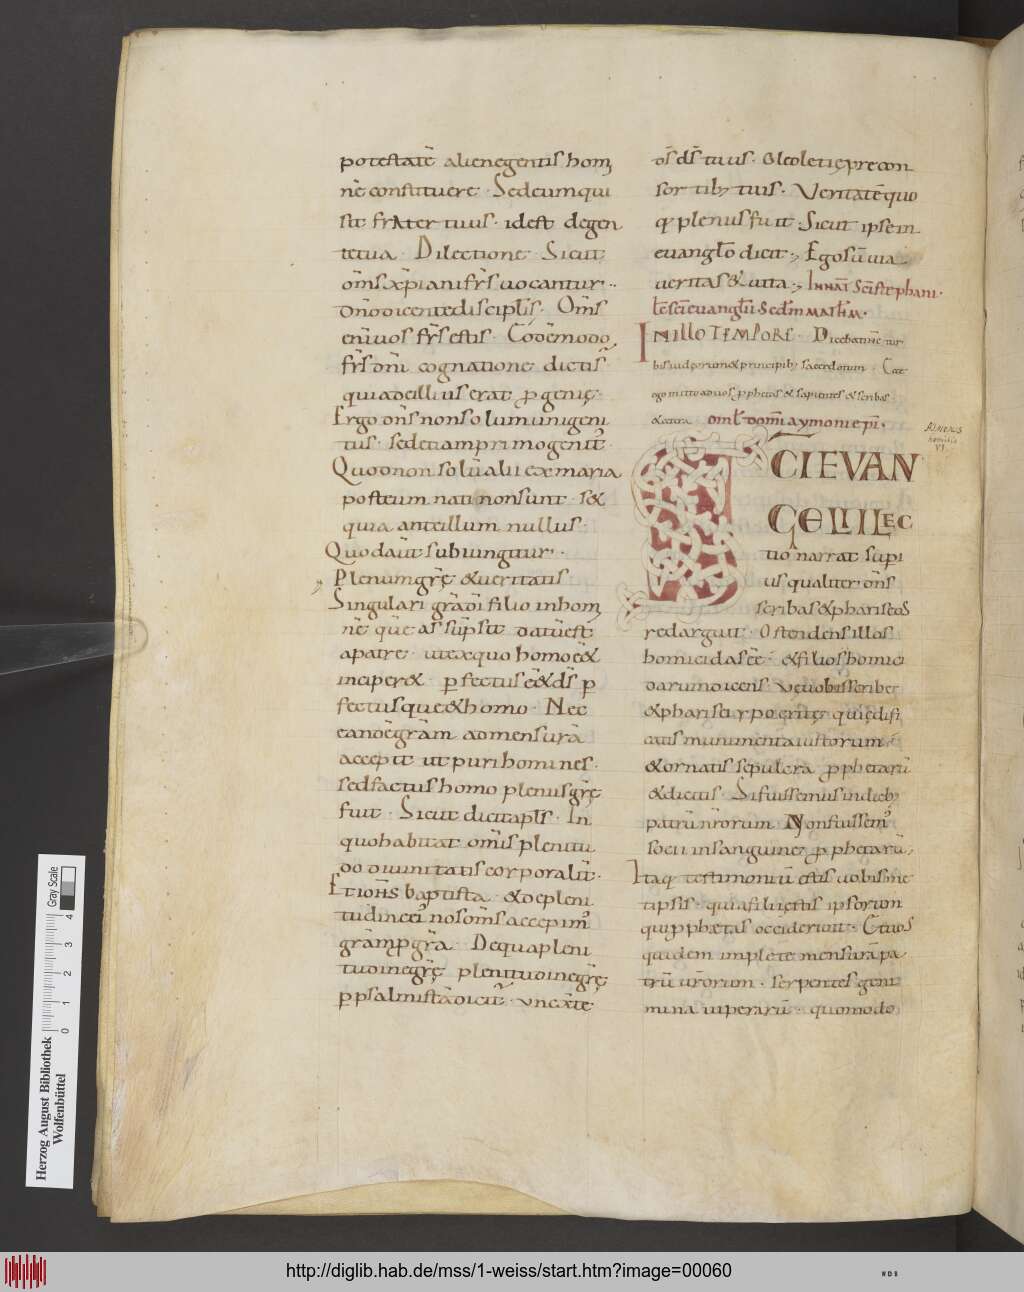 potestatē alienegentis homı
nē constituere · Sedeum qui
sit frater tuus · id est degen
tetua · Dilectione · Sicut
om̄s xp̄iani fr̄s uocantur ·
dn̄o dicente discipl̄is · Om̄s
enī uos fr̄s estis · Eodē modo
fr̄s dn̄i cognatione dictis
quia deillius erat ꝓgenię
Ergo dn̄s non solum unigeni
tus · sed etiam primogenit᷒
Quod non solū alii ex maria
post eum nati non sunt · s&
quia ante illum nullus ·
Quod aūt subiungitur · ·
Plenum gr̄ę & ueritatis
Singulari gr̄a dī filio in hom
nē quē as sūpsit datū est
a patre · ut ex quo homo ēē
inciper& · ꝑfectus ēē & ds̄ ꝑ
fectusque & homo · Nec
eandē gr̄am ad mensurā
accepit ut puri homines ·
sed factus homo plenus gr̄ę
fuit · Sicut dicit apl̄s · In
quo habitat om̄is plenitu
do diuinitatis corporalit̄ ·
Et ioh̄s baptista · & de pleni
tudine ei᷒ nos om̄s accepim᷒
gr̄am ꝓ gr̄a · De qua pleni
tudine gr̄ę plenitudine gr̄ę
ꝑ psalmistā dicit᷒ · unc̄ te
ds̄ ds̄ tuus · Oleo letitię pre con
sortib; tuis · Veritatē quo
q; plenus fuit · Sicut ipse in
euangl̄o dicit ; Ego sū uia
ueritas & uita ; In nat̄ sc̄i stephani ·
lc̄ sc̄i euangl̄ii · Sec̄dm math̄m ·
IN ILLO TEMPORE · Dicebat ih̄c tur
bis iudęorum & principib; sacerdotum · Ecce
ego mitto ad uos ꝓphetas & sapientes & scribas
& cetera omt̄ domn̄i aymonis epī ·
SCI EVAN
GELII LEC
tio narrat supi
us qualiter dn̄s
scribas & phariseos
redarguit · Ostendens illos
homicidas eē · & filios homici
darum dicens · Ve uobis scribe
& pharisei ypocritę qui ędifi
catis munumenta iustorum
& ornatis sepulcra ꝓphetarū
& dicitis · Si fuissemus in dieb;
patrū nr̄orum Non fuissem᷒
socii in sanguine ꝓphetarū ;
Itaq; testimoniū estis uobism&
ipsis · quia filii estis ipsorum
qui ꝓphetas occiderunt · Et uos
quidem implete mensurā pa
trū ur̄orum · Serpentes geni
mina uiperarū · quomodo
homilia
VI
Herzog August Bibliothek
Wolfenbüttel
0 1 2 3 4
Gray Scale
http://diglib.hab.de/mss/1-weiss/start.htm?image=00060